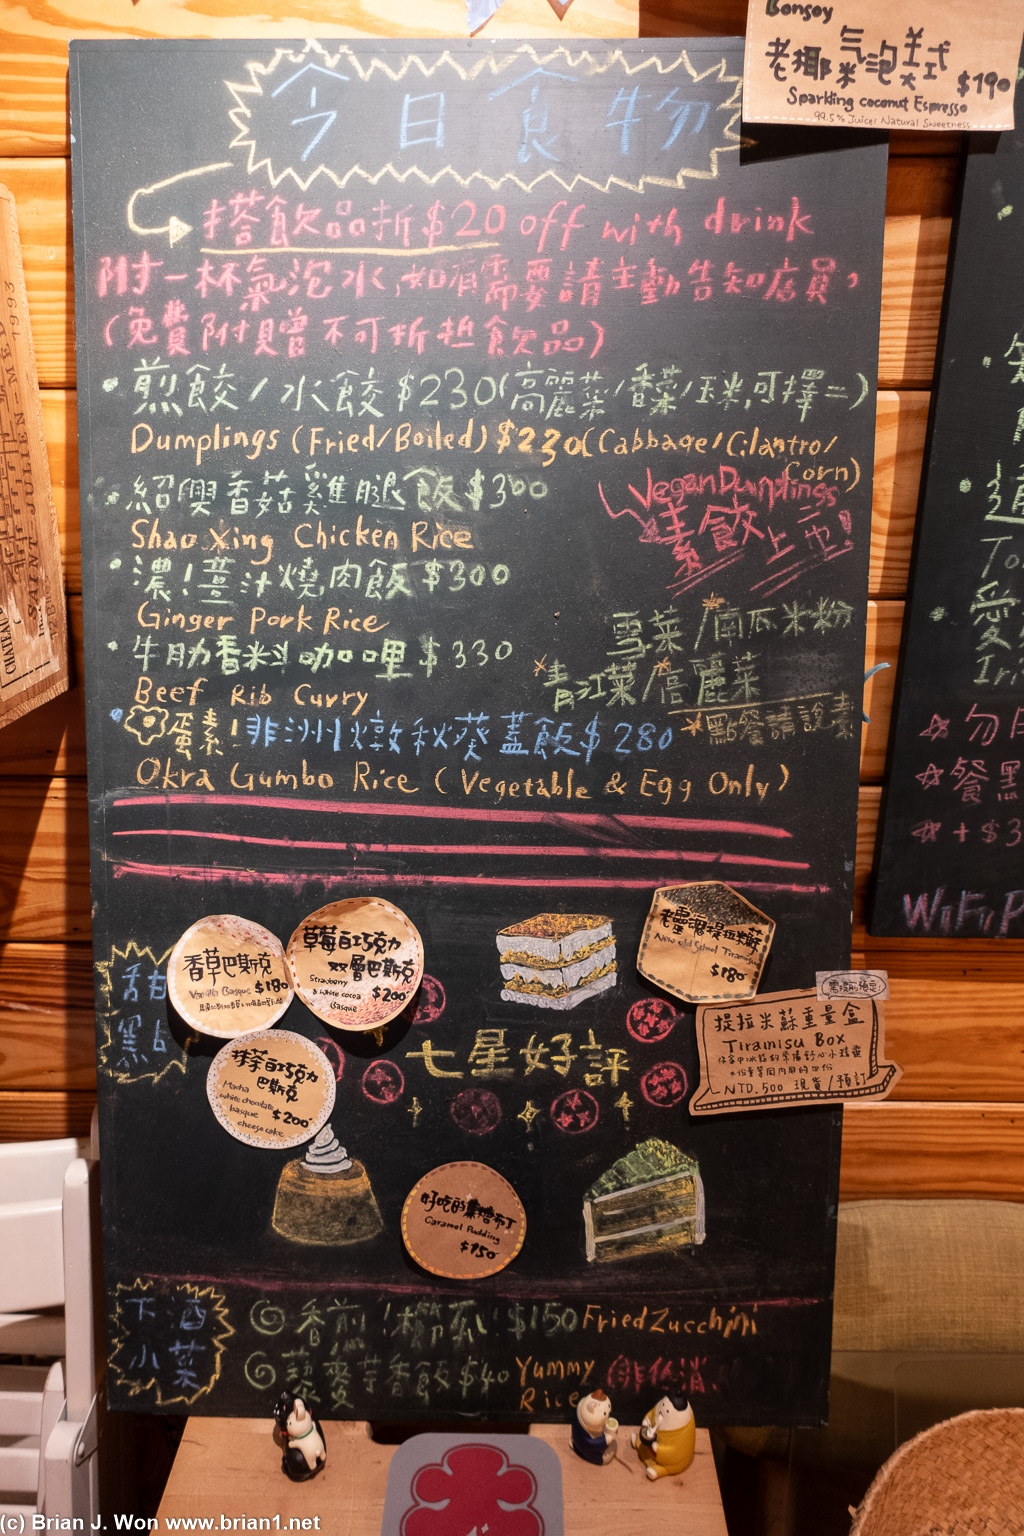 Bonsoy
老椰氣泡美式
$190
Sparkling coconut Espresso
99.5% Juice! Natural Sweetness
今日食物
搭飲品折$20 off with drink
附一杯氣泡水,如有需要請主動告知店員,
(免費附贈不可折抵飲品)
煎餃/水餃$230(高麗菜/香菜/玉米,可擇二)
Dumplings (Fried/Boiled) $230(Cabbage/Cilantro/
Corn)
紹興香菇雞腿飯$300
Vegan Dumplings
素餃上市!
Shao Xing Chicken Rice
濃!薑汁燒肉飯$300
Ginger Pork Rice
雪菜/南瓜米粉
牛肋香料咖哩$330
青江菜/高麗菜
Beef Rib Curry
點餐請說素
蛋素!非洲燉秋葵蓋飯$280
Okra Gumbo Rice (Vegetable & Egg Only)
甜點
香草巴斯克
Vanilla Basque $180
草莓白巧克力
双層巴斯克
Strawberry
& white cocoa $200
Basque
老靈魂提拉米蘇
New old School Tiramisu
$180
抹茶白巧克力
巴斯克
Macha
white chocolate $200
basque
cheese cake
七星好評
提拉米蘇重量盒
Tiramisu Box
NTD.500 現貨/預訂
好吃的焦糖布丁
Caramel Pudding
$150
下酒
小菜
香煎!櫛瓜!$150 Fried Zucchini
$40 Yummy
Rice
WiFi P
CHATEAU
SAINT-JULIEN-MED
1993
(c) Brian J. Won www.brian1.net